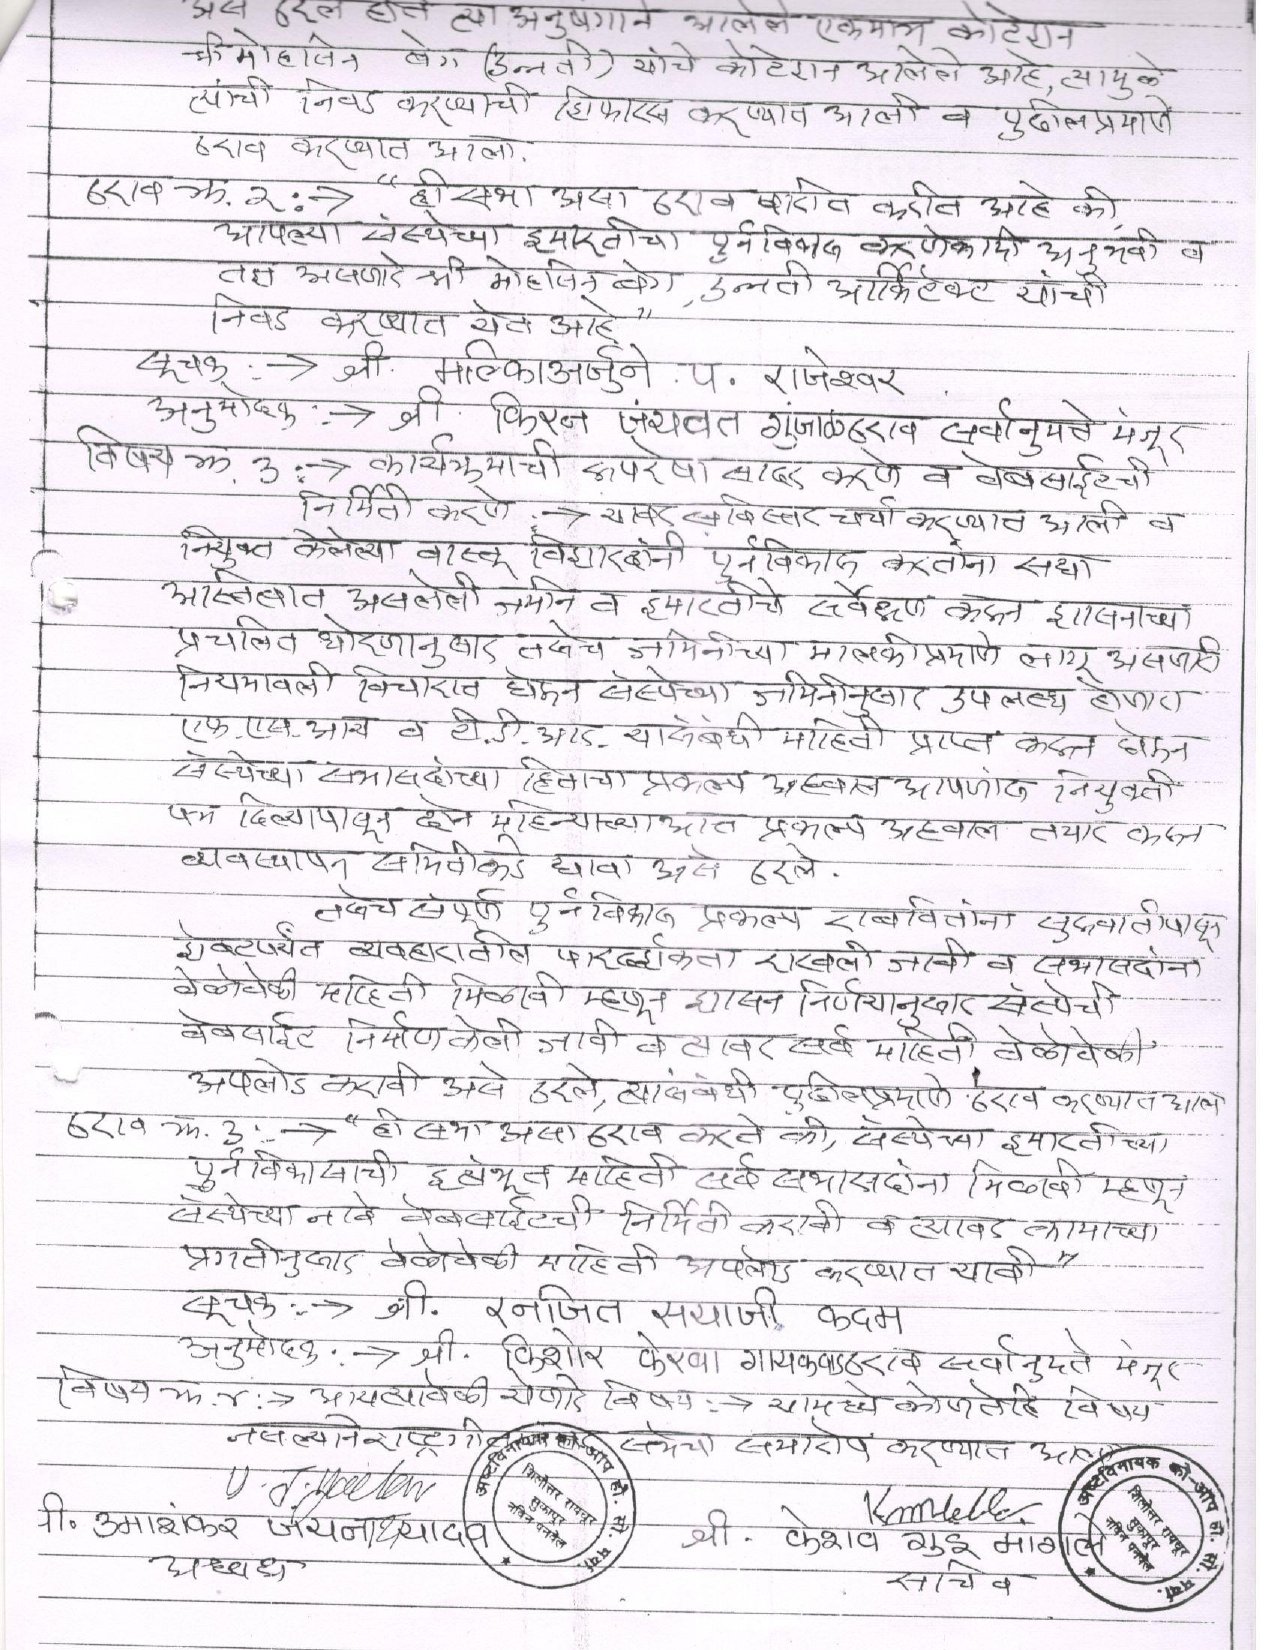 असे ठरले होते त्या अनुषंगाने आलेले एकमात्र कोटेशन
श्री मोहसिन बेग (उन्नती) यांचे कोटेशन आलेले आहे, त्यामुळे
त्यांची निवड करण्याची शिफारस करण्यात आली व पुढीलप्रमाणे
ठराव करण्यात आला.
ठराव क्र. २ :→ "ही सभा असा ठराव पारित करीत आहे की,
आपल्या संस्थेच्या इमारतीचा पुर्नविकास करणेकामी अनुभवी व
तज्ञ असणारे श्री मोहसिन बेग, उन्नती आर्किटेक्ट यांची
निवड करण्यात येत आहे"
सूचक :→ श्री. मल्लिकाअर्जुने . प. राजेश्वर
अनुमोदक :→ श्री. किरन जयवंत गुंजाळ ठराव सर्वानुमते मंजूर
विषय क्र. ३ :→ कार्यक्रमाची रुपरेषा सादर करणे व वेबसाईटची
निर्मिती करणे :→ यावर सविस्तर चर्चा करण्यात आली व
नियुक्त केलेल्या वास्तू विशारदांनी पुर्नविकास करतांना सध्या
अस्तित्वात असलेली जमीन व इमारतीचे सर्वेक्षण करुन शासनाच्या
प्रचलित धोरणानुसार तसेच जमिनीच्या मालकीप्रमाणे लागू असणारी
नियमावली विचारात घेऊन संस्थेच्या जमिनीनुसार उपलब्ध होणारा
एफ.एस.आय व टी.डी.आर. यासंबंधी माहिती प्राप्त करुन घेऊन
संस्थेच्या सभासदांच्या हिताचा प्रकल्प अहवाल आपणांस नियुक्ती
पत्र दिल्यापासून दोन महिन्याच्याआत प्रकल्प अहवाल तयार करुन
व्यवस्थापन समितीकडे द्यावा असे ठरले.
तसेच संपूर्ण पुर्नविकास प्रकल्प राबवितांना सुरुवातीपासून
शेवटपर्यंत व्यवहारातील पारदर्शकता राखली जावी व सभासदांना
वेळोवेळी माहिती मिळावी म्हणून शासन निर्णयानुसार संस्थेची
वेबसाईट निर्माण केली जावी व त्यावर सर्व माहिती वेळोवेळी
अपलोड करावी असे ठरले, त्यासंबंधी पुढीलप्रमाणे ठराव करण्यात आला
ठराव क्र. ३ :→ "ही सभा असा ठराव करते की, संस्थेच्या इमारतीच्या
पुर्नविकासाची इत्थंभूत माहिती सर्व सभासदांना मिळावी म्हणून
संस्थेच्या नावे वेबसाईटची निर्मिती करावी व त्यावर कामाच्या
प्रगतीनुसार वेळोवेळी माहिती अपलोड करण्यात यावी"
सूचक :→ श्री. रनजित सयाजी कदम
अनुमोदक :→ श्री. किशोर केरबा गायकवाड ठराव सर्वानुमते मंजूर
विषय क्र. ४ :→ आयत्यावेळी येणारे विषय :→ यामध्ये कोणतेही विषय
नसल्याने राष्ट्रगी सभेचा समारोप करण्यात आला
श्री. उमाशंकर जयनाथ यादव
अध्यक्ष
श्री. केशव राजू मागाले
सचिव
अष्टविनायक को-ऑप हौ. सो. मर्या.
शिलोत्तर रायचूर
सुकापूर
नविन पनवेल
अष्टविनायक को-ऑप हौ. सो. मर्या.
शिलोत्तर रायचूर
सुकापूर
नविन पनवेल